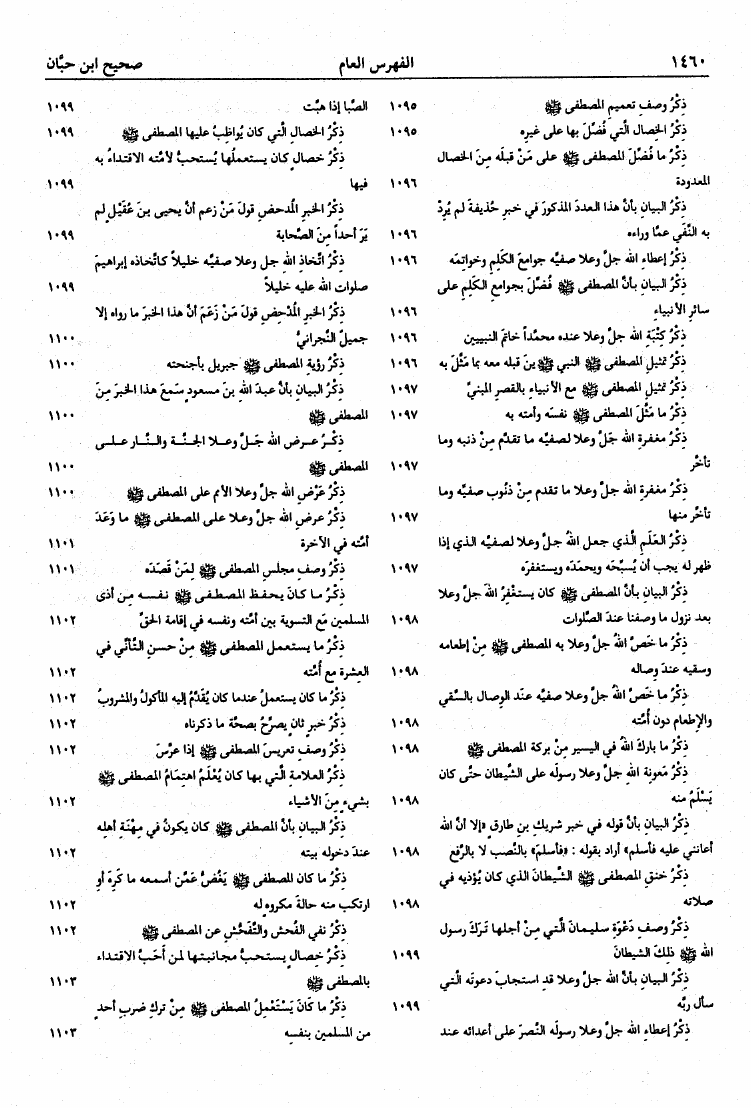 ١٤٦٠ الفهرس العام صحيح ابن حبَّان
ذِكْرُ وصفِ تعميمِ المصطفى ﷺ ١٠٩٥
ذِكْرُ الخصالِ الَّتي فُضِّلَ بها على غيرِه ١٠٩٥
ذِكْرُ ما فُضِّلَ المصطفى ﷺ على مَنْ قبلَه مِنَ الخصال
المعدودة ١٠٩٦
ذِكْرُ البيان بأنَّ هذا العددَ المذكورَ في خبرِ حُذيفةَ لم يُرِدْ
به النَّفي عمَّا وراءه ١٠٩٦
ذِكْرُ إعطاءِ الله جلَّ وعلا صفيَّه جوامعَ الكَلِمِ وخواتِمَه ١٠٩٦
ذِكْرُ البيانِ بأنَّ المصطفى ﷺ فُضِّلَ بجوامعِ الكَلِمِ على
سائرِ الأنبياءِ ١٠٩٦
ذِكْرُ كِتْبَةِ الله جلَّ وعلا عنده محمَّداً خاتمَ النبيين ١٠٩٦
ذِكْرُ تمثيلِ المصطفى ﷺ النبي ﷺ ين قبله معه بما مَثَّلَ به ١٠٩٦
ذِكْرُ تمثيلِ المصطفى ﷺ مع الأنبياءِ بالقصرِ المبنيِّ ١٠٩٧
ذِكْرُ ما مَثَّلَ المصطفى ﷺ نفسَه وأمته به ١٠٩٧
ذِكْرُ مغفرةِ الله جَلَّ وعلا لصفيِّه ما تقدَّم مِنْ ذنبه وما
تأخَّر ١٠٩٧
ذِكْرُ مغفرةِ الله جلَّ وعلا ما تقدم مِنْ ذنُوب صفيِّه وما
تأخَّر منها ١٠٩٧
ذِكْرُ العَلَمِ الَّذي جعل اللهُ جلَّ وعلا لصفيِّه الذي إذا
ظهر له يجب أن يُسبِّحَه ويحمَده ويستغفرَه ١٠٩٧
ذِكْرُ البيانِ بأنَّ المصطفى ﷺ كان يستغْفِرُ اللهَ جلَّ وعلا
بعد نزولِ ما وصفنا عندَ الصَّلوات ١٠٩٨
ذِكْرُ ما خَصَّ اللهُ جلَّ وعلا به المصطفى ﷺ مِنْ إطعامه
وسقيه عندَ وصاله ١٠٩٨
ذِكْرُ ما خَصَّ اللهُ جلَّ وعلا صفيَّه عندَ الوصالِ بالسَّقي
والإطعامِ دون أُمَّته ١٠٩٨
ذِكْرُ ما باركَ اللهُ في اليسير مِنْ بركة المصطفى ﷺ ١٠٩٨
ذِكْرُ مَعونةِ الله جلَّ وعلا رسولَه على الشَّيطان حتَّى كان
يَسْلَمُ منه ١٠٩٨
ذِكْرُ البيان بأنَّ قوله في خبر شريكِ بنِ طارق «إلا أنَّ الله
أعانني عليه فأسلم» أراد بقوله : «فأسلَمَ» بالنَّصب لا بالرَّفع ١٠٩٨
ذِكْرُ خنقِ المصطفى ﷺ الشَّيطانَ الذي كان يُؤذيه في
صلاته ١٠٩٨
ذِكْرُ وصفِ دَعْوَةِ سليمانَ الَّتي مِنْ أجلها تَرَكَ رسول
الله ﷺ ذلك الشيطانَ ١٠٩٩
ذِكْرُ البيانِ بأنَّ الله جلَّ وعلا قد استجابَ دعوتَه الَّتي
سأل ربَّه ١٠٩٩
ذِكْرُ إعطاءِ الله جلَّ وعلا رسولَه النَّصرَ على أعدائه عند
الصَّبا إذا هبَّت ١٠٩٩
ذِكْرُ الخصالِ الَّتي كان يُواظِبُ عليها المصطفى ﷺ ١٠٩٩
ذِكْرُ خصالٍ كان يستعملُها يُستحبُّ لأمَّته الاقتداءُ به
فيها ١٠٩٩
ذِكْرُ الخبرِ المُدحضِ قولَ مَنْ زعم أنَّ يحيى بنَ عُقَيْلٍ لم
يَرَ أحداً مِنَ الصَّحابة ١٠٩٩
ذِكْرُ اتِّخاذِ الله جل وعلا صفيَّه خليلاً كاتِّخاذه إبراهيمَ
صلوات الله عليه خليلاً ١٠٩٩
ذِكْرُ الخبرِ المُدْحِضِ قولَ مَنْ زَعَمَ أنَّ هذا الخبرَ ما رواه إلا
جميلٌ النَّجرانيُّ ١١٠٠
ذِكْرُ رؤيةِ المصطفى ﷺ جبريلَ بأجنحته ١١٠٠
ذِكْرُ البيانِ بأنَّ عبدَ الله بنَ مسعود سَمعَ هذا الخبرَ مِنَ
المصطفى ﷺ ١١٠٠
ذِكْرُ عرضِ الله جَلَّ وعلا الجنَّةَ والنَّار على
المصطفى ﷺ ١١٠٠
ذِكْرُ عَرْضِ الله جلَّ وعلا الأمم على المصطفى ﷺ ١١٠٠
ذِكْرُ عرضِ الله جلَّ وعلا على المصطفى ﷺ ما وَعَدَ
أمَّته في الآخرة ١١٠١
ذِكْرُ وصفِ مجلسِ المصطفى ﷺ لِمَنْ قَصَدَه ١١٠١
ذِكْرُ ما كانَ يحفظ المصطفى ﷺ نفسه مِن أذى
المسلمين مَعَ التسويةِ بين أمَّته ونفسه في إقامة الحقِّ ١١٠٢
ذِكْرُ ما يستعمل المصطفى ﷺ مِنْ حسنِ التَّأنِّي في
العِشرة مع أُمَّته ١١٠٢
ذِكْرُ ما كان يستعمل عندما كان يُقَدَّمُ إليه المأكولُ والمشروبُ ١١٠٢
ذِكْرُ خبرٍ ثانٍ يصرِّحُ بصحَّة ما ذكرناه ١١٠٢
ذِكْرُ وصفِ تعريسِ المصطفى ﷺ إذا عرَّسَ ١١٠٢
ذِكْرُ العلامةِ الَّتي بها كان يُعْلَمُ اهتمامُ المصطفى ﷺ
بشيءٍ مِنَ الأشياء ١١٠٢
ذِكْرُ البيانِ بأنَّ المصطفى ﷺ كان يكونُ في مِهْنَةِ أهله
عندَ دخولِه بيته ١١٠٢
ذِكْرُ ما كان المصطفى ﷺ يَغُضُّ عَمَّن أسمعه ما كَرِهَ أو
ارتكب منه حالةَ مكروهٍ له ١١٠٢
ذِكْرُ نفي الفُحش والتَّفَحُّش عن المصطفى ﷺ ١١٠٢
ذِكْرُ خصالٍ يستحبُّ مجانبتها لمن أحَبَّ الاقتداء
بالمصطفى ﷺ ١١٠٣
ذِكْرُ ما كَانَ يَسْتَعْمِلُ المصطفى ﷺ مِنْ تركِ ضربِ أحدٍ
من المسلمين بنفسِه ١١٠٣